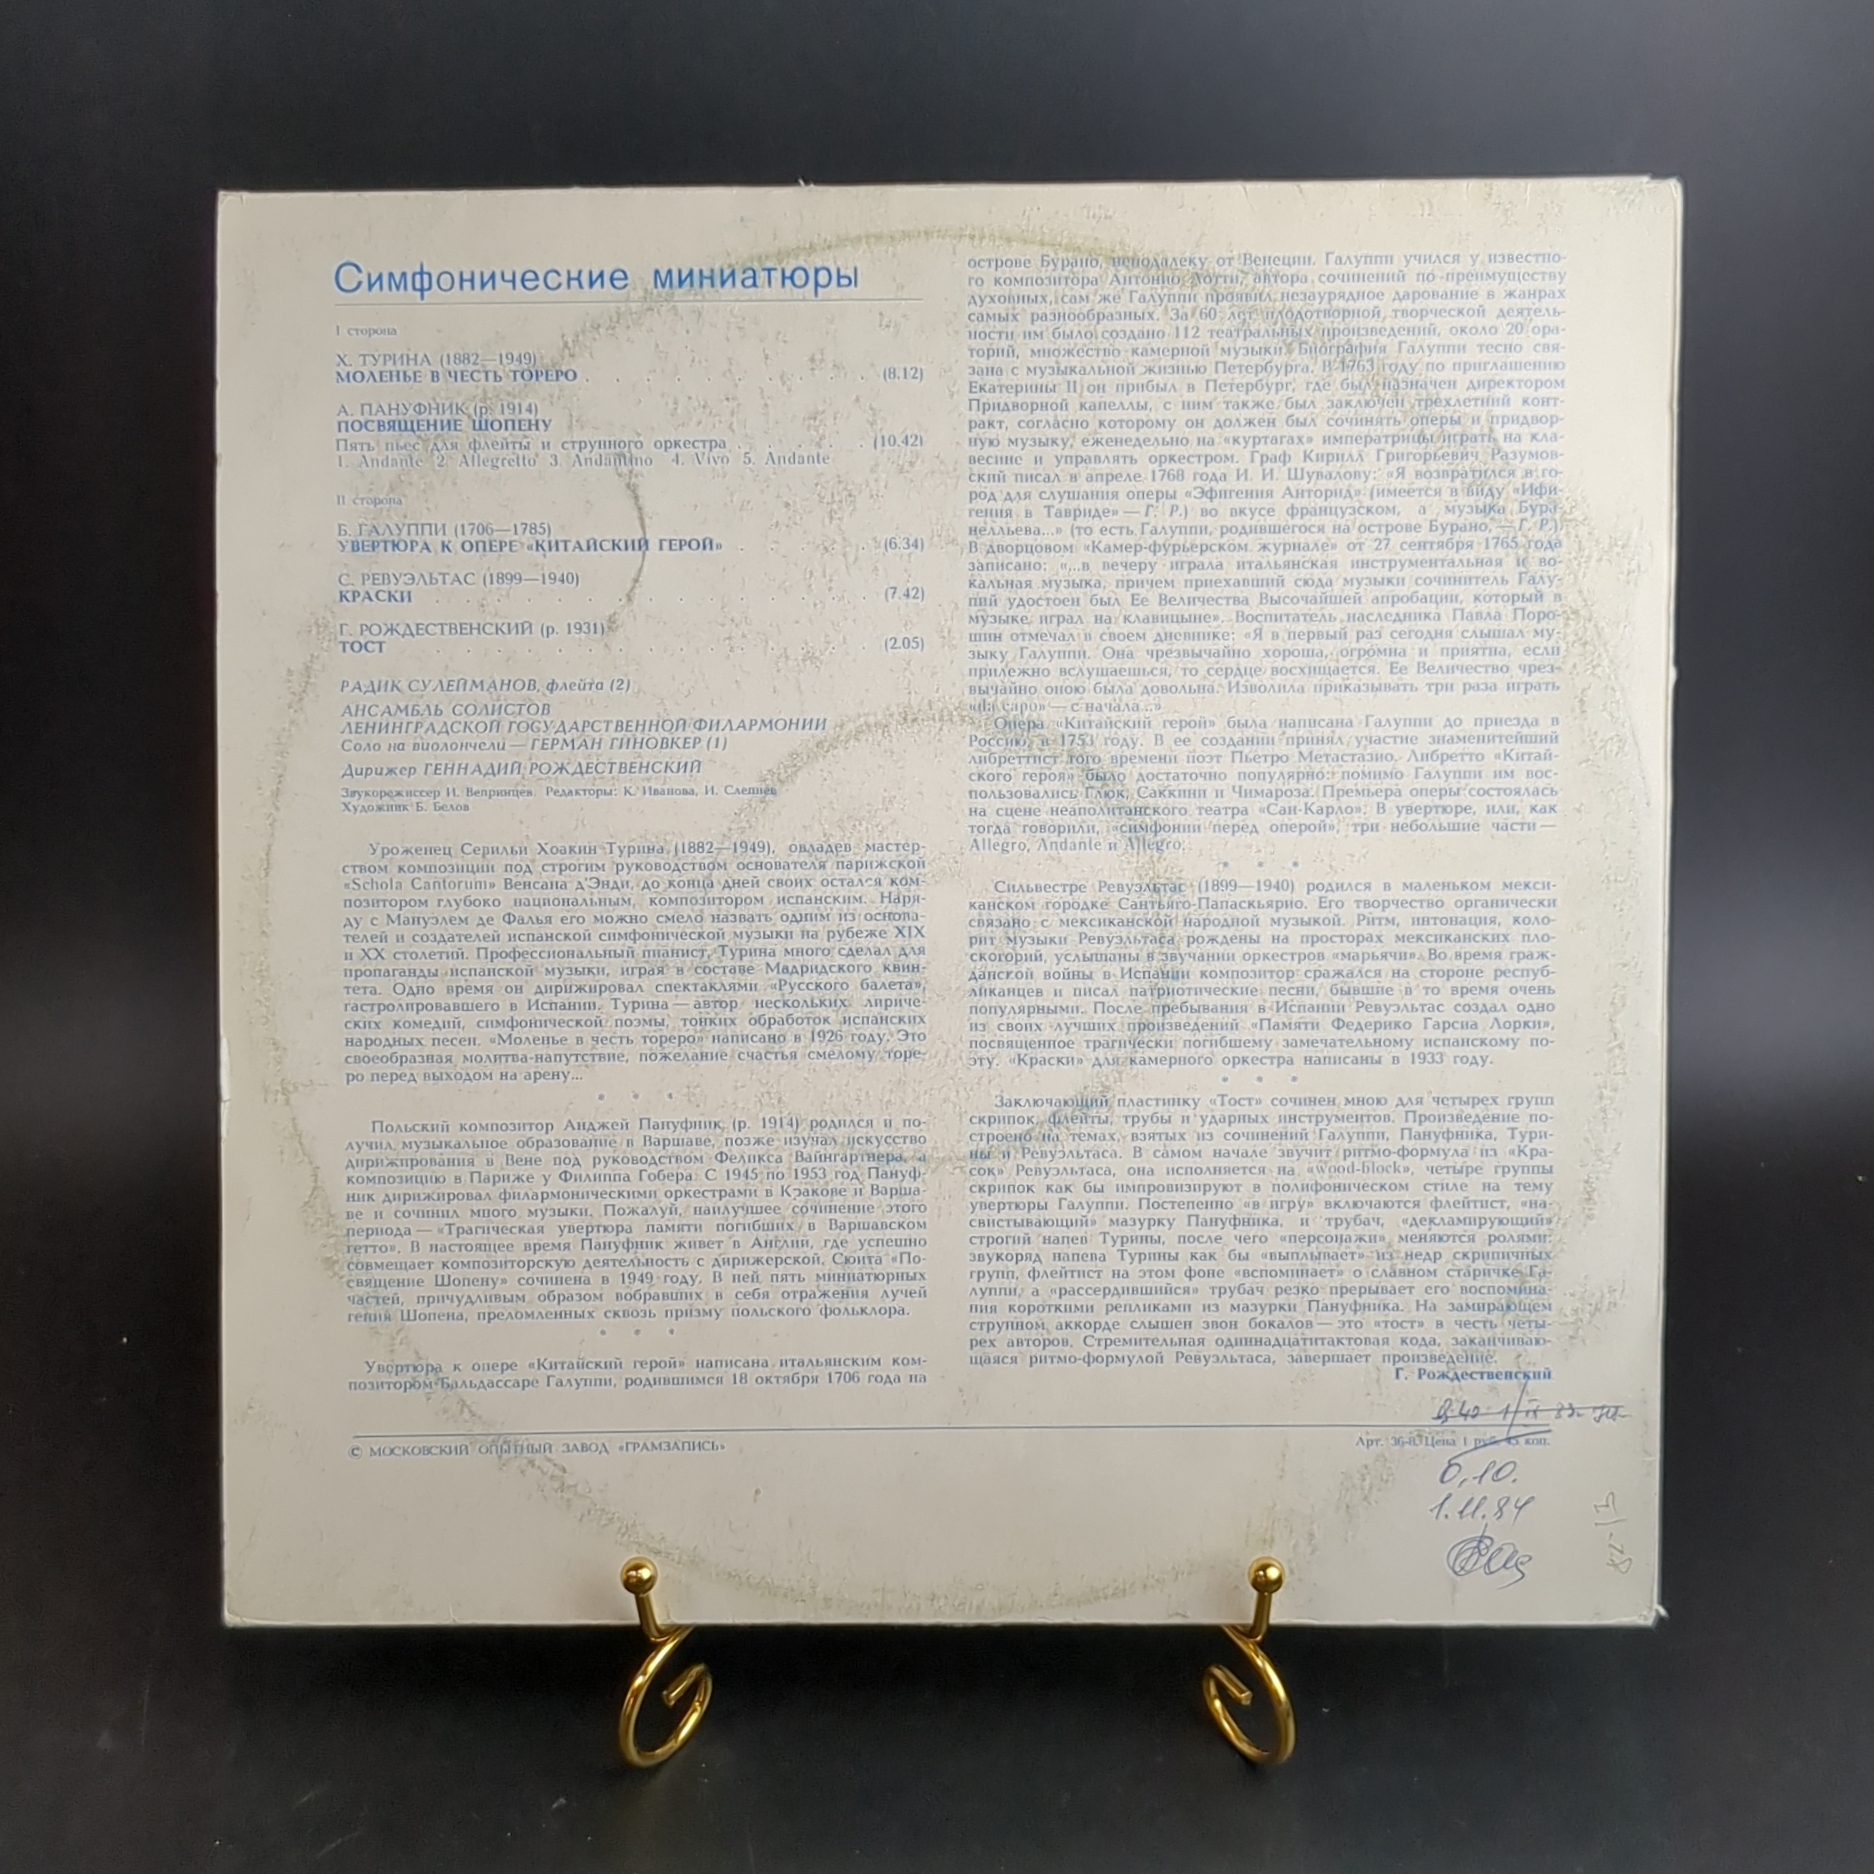 Симфонические миниатюры
I сторона
Х. ТУРИНА (1882—1949)
МОЛЕНЬЕ В ЧЕСТЬ ТОРЕРО . . . . . . . . . . (8.12)
А. ПАНУФНИК (р. 1914)
ПОСВЯЩЕНИЕ ШОПЕНУ
Пять пьес для флейты и струнного оркестра . . . . . (10.42)
1. Andante 2. Allegretto 3. Andantino 4. Vivo 5. Andante
II сторона
Б. ГАЛУППИ (1706—1785)
УВЕРТЮРА К ОПЕРЕ «КИТАЙСКИЙ ГЕРОЙ» . . . . . (6.34)
С. РЕВУЭЛЬТАС (1899—1940)
КРАСКИ . . . . . . . . . . . . (7.42)
Г. РОЖДЕСТВЕНСКИЙ (р. 1931)
ТОСТ . . . . . . . . . . . . (2.05)
РАДИК СУЛЕЙМАНОВ, флейта (2)
АНСАМБЛЬ СОЛИСТОВ
ЛЕНИНГРАДСКОЙ ГОСУДАРСТВЕННОЙ ФИЛАРМОНИИ
Соло на виолончели — ГЕРМАН ГИНОВКЕР (1)
Дирижер ГЕННАДИЙ РОЖДЕСТВЕНСКИЙ
Звукорежиссер И. Вепринцев. Редакторы: К. Иванова, И. Слепнев
Художник Б. Белов
Уроженец Севильи Хоакин Турина (1882—1949), овладев мастер-
ством композиции под строгим руководством основателя парижской
«Schola Cantorum» Венсана д'Энди, до конца дней своих остался ком-
позитором глубоко национальным, композитором испанским. Наря-
ду с Мануэлем де Фалья его можно смело назвать одним из основа-
телей и создателей испанской симфонической музыки на рубеже XIX
и XX столетий. Профессиональный пианист, Турина много сделал для
пропаганды испанской музыки, играя в составе Мадридского квин-
тета. Одно время он дирижировал спектаклями «Русского балета»,
гастролировавшего в Испании. Турина — автор нескольких лириче-
ских комедий, симфонической поэмы, тонких обработок испанских
народных песен. «Моленье в честь тореро» написано в 1926 году. Это
своеобразная молитва-напутствие, пожелание счастья смелому торе-
ро перед выходом на арену...
* * *
Польский композитор Анджей Пануфник (р. 1914) родился и по-
лучил музыкальное образование в Варшаве, позже изучал искусство
дирижирования в Вене под руководством Феликса Вайнгартнера, а
композицию в Париже у Филиппа Гобера. С 1945 по 1953 год Пануф-
ник дирижировал филармоническими оркестрами в Кракове и Варша-
ве и сочинил много музыки. Пожалуй, наилучшее сочинение этого
периода — «Трагическая увертюра памяти погибших в Варшавском
гетто». В настоящее время Пануфник живет в Англии, где успешно
совмещает композиторскую деятельность с дирижерской. Сюита «По-
священие Шопену» сочинена в 1949 году. В ней пять миниатюрных
частей, причудливым образом вобравших в себя отражения лучей
гения Шопена, преломленных сквозь призму польского фольклора.
* * *
Увертюра к опере «Китайский герой» написана итальянским ком-
позитором Бальдассаре Галуппи, родившимся 18 октября 1706 года на
острове Бурано, неподалеку от Венеции. Галуппи учился у известно-
го композитора Антонио Лотти, автора сочинений по преимуществу
духовных, сам же Галуппи проявил незаурядное дарование в жанрах
самых разнообразных. За 60 лет плодотворной творческой деятель-
ности им было создано 112 театральных произведений, около 20 ора-
торий, множество камерной музыки. Биография Галуппи тесно свя-
зана с музыкальной жизнью Петербурга. В 1763 году по приглашению
Екатерины II он прибыл в Петербург, где был назначен директором
Придворной капеллы, с ним также был заключен трехлетний конт-
ракт, согласно которому он должен был сочинять оперы и придвор-
ную музыку, еженедельно на «куртагах» императрицы играть на кла-
весине и управлять оркестром. Граф Кирилл Григорьевич Разумов-
ский писал в апреле 1768 года И. И. Шувалову: «Я возвратился в го-
род для слушания оперы «Эфигения Анторид» (имеется в виду «Ифи-
гения в Тавриде» — Г. Р.) во вкусе французском, а музыка Бура-
нелльева...» (то есть Галуппи, родившегося на острове Бурано, — Г. Р.).
В дворцовом «Камер-фурьерском журнале» от 27 сентября 1765 года
записано: «...в вечеру играла итальянская инструментальная и во-
кальная музыка, причем приехавший сюда музыки сочинитель Галу-
пий удостоен был Ее Величества Высочайшей апробации, который в
музыке играл на клавицыне». Воспитатель наследника Павла Поро-
шин отмечал в своем дневнике: «Я в первый раз сегодня слышал му-
зыку Галуппи. Она чрезвычайно хороша, огромна и приятна, если
прилежно вслушаешься, то сердце восхищается. Ее Величество чрез-
вычайно оною была довольна. Изволила приказывать три раза играть
«da capo» — с начала...»
Опера «Китайский герой» была написана Галуппи до приезда в
Россию, в 1753 году. В ее создании принял участие знаменитейший
либреттист того времени поэт Пьетро Метастазио. Либретто «Китай-
ского героя» было достаточно популярно: помимо Галуппи им вос-
пользовались Глюк, Саккини и Чимароза. Премьера оперы состоялась
на сцене неаполитанского театра «Сан-Карло». В увертюре, или, как
тогда говорили, «симфонии перед оперой», три небольшие части —
Allegro, Andante и Allegro.
* * *
Сильвестре Ревуэльтас (1899—1940) родился в маленьком мекси-
канском городке Сантьяго-Папаскьярио. Его творчество органически
связано с мексиканской народной музыкой. Ритм, интонация, коло-
рит музыки Ревуэльтаса рождены на просторах мексиканских пло-
скогорий, услышаны в звучании оркестров «марьячи». Во время граж-
данской войны в Испании композитор сражался на стороне респуб-
ликанцев и писал патриотические песни, бывшие в то время очень
популярными. После пребывания в Испании Ревуэльтас создал одно
из своих лучших произведений «Памяти Федерико Гарсиа Лорки»,
посвященное трагически погибшему замечательному испанскому по-
эту. «Краски» для камерного оркестра написаны в 1933 году.
* * *
Заключающий пластинку «Тост» сочинен мною для четырех групп
скрипок, флейты, трубы и ударных инструментов. Произведение по-
строено на темах, взятых из сочинений Галуппи, Пануфника, Тури-
ны и Ревуэльтаса. В самом начале звучит ритмо-формула из «Кра-
сок» Ревуэльтаса, она исполняется на «wood-block», четыре группы
скрипок как бы импровизируют в полифоническом стиле на тему
увертюры Галуппи. Постепенно «в игру» включаются флейтист, «на-
свистывающий» мазурку Пануфника, и трубач, «декламирующий»
строгий напев Турины, после чего «персонажи» меняются ролями:
звукоряд напева Турины как бы «выплывает» из недр скрипичных
групп, флейтист на этом фоне «вспоминает» о славном старичке Га-
луппи, а «рассердившийся» трубач резко прерывает его воспомина-
ния короткими репликами из мазурки Пануфника. На замирающем
струнном аккорде слышен звон бокалов — это «тост» в честь четы-
рех авторов. Стремительная одиннадцатитактовая кода, заканчиваю-
щаяся ритмо-формулой Ревуэльтаса, завершает произведение.
Г. Рождественский
© МОСКОВСКИЙ ОПЫТНЫЙ ЗАВОД «ГРАМЗАПИСЬ»
Арт. 36-8. Цена 1 руб. 45 коп.
0,10.
1.11.84